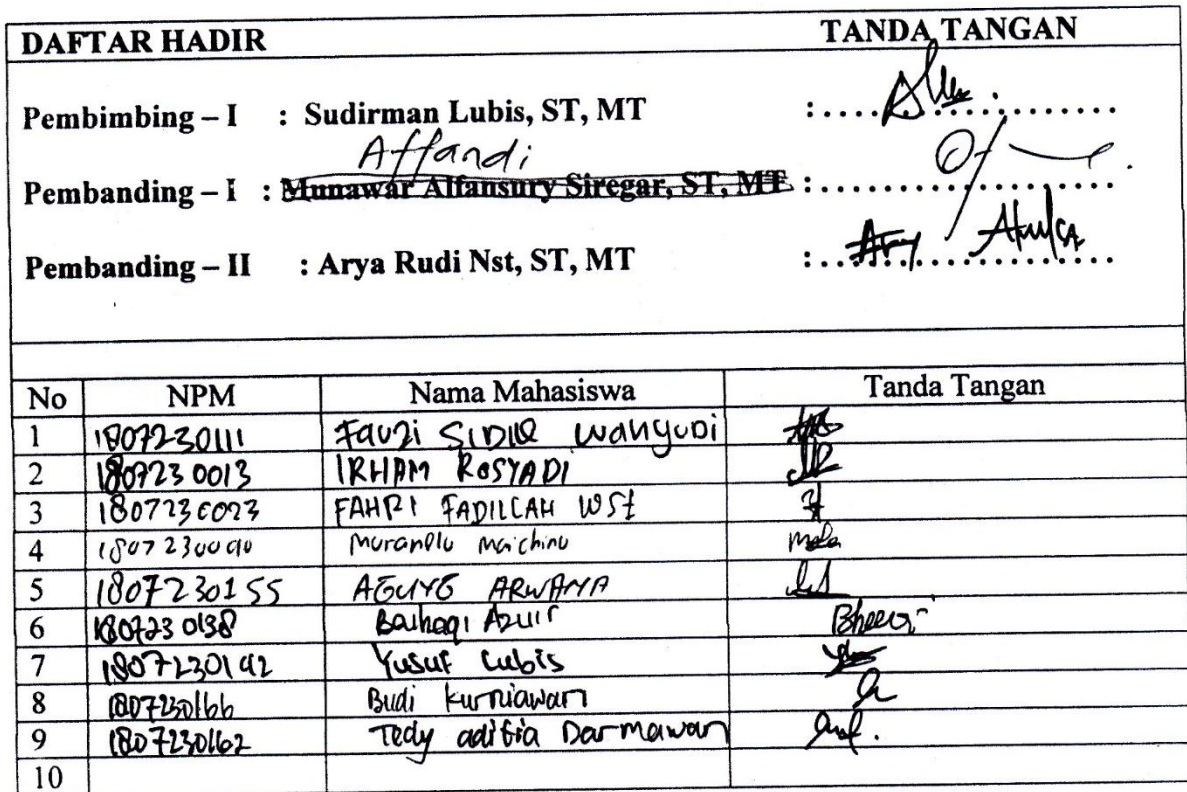 DAFTAR HADIR TANDA TANGAN
Pembimbing – I : Sudirman Lubis, ST, MT :
Affandi
Pembanding – I : Munawar Alfansury Siregar, ST, MT :
Pembanding – II : Arya Rudi Nst, ST, MT :
No NPM Nama Mahasiswa Tanda Tangan
1 1807230111 Fauzi SIDIQ WAHYUDI
2 1807230013 IRHAM ROSYADI
3 1807230023 FAHRI FADILLAH
4
5 1807230155 AGUNG
6 1807230138 Baihaqi Azuir
7 1807230192 Yusuf Lubis
8 1807230166 Budi Kurniawan
9 1807230162 Tedy aditia Darmawan
10